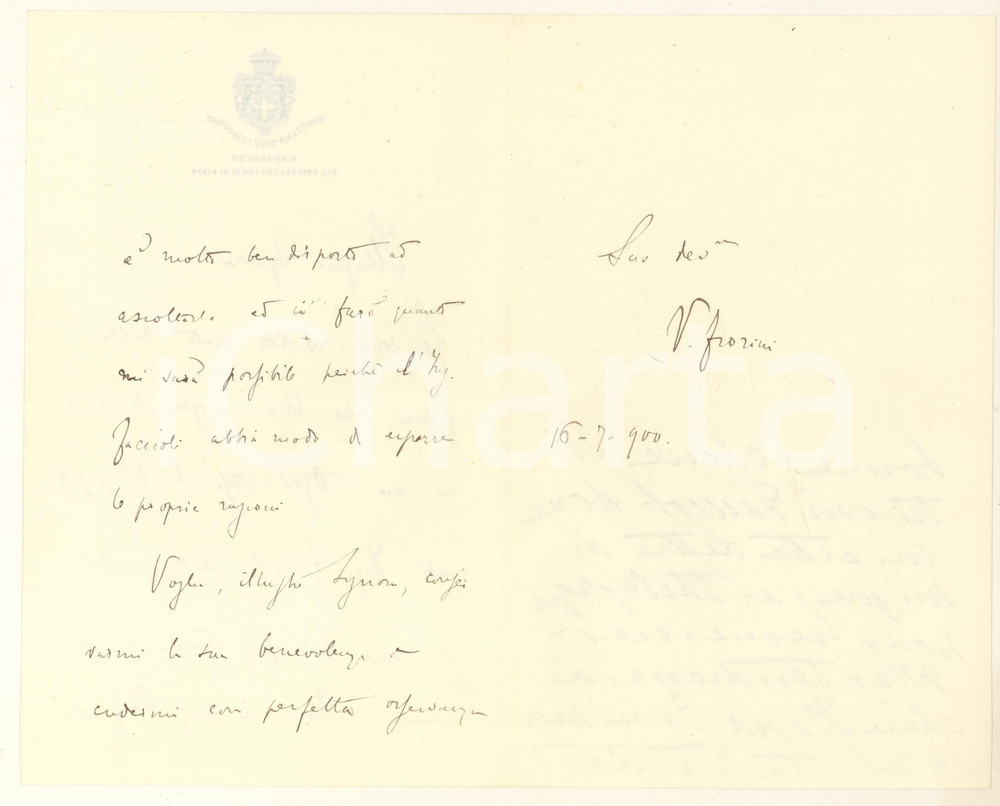 è molto ben disposto ad
ascoltarlo ed io farò quanto
mi sarà possibile perché l'Ing.
Faccioli abbia modo di esporre
le proprie ragioni
Voglia, illustre Signora, conser
varmi la sua benevolenza e
credermi con perfetta osservanza
Suo dev.mo
V. Fiorini
16-7-900.
iCharta